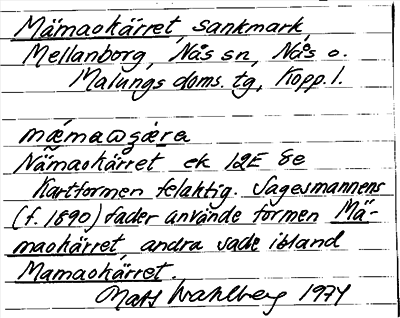 Mämaokärret, sankmark,
Mellanborg, Nås sn, Nås o.
Malungs doms. tg, Kopp. l.
Nämaokärret ek 12E 8e
Kartformen felaktig. Sagesmannens
(f. 1890) fader använde formen Mä-
maokärret, andra sade ibland
Mamaokärret.
Mats Wahlberg 1974